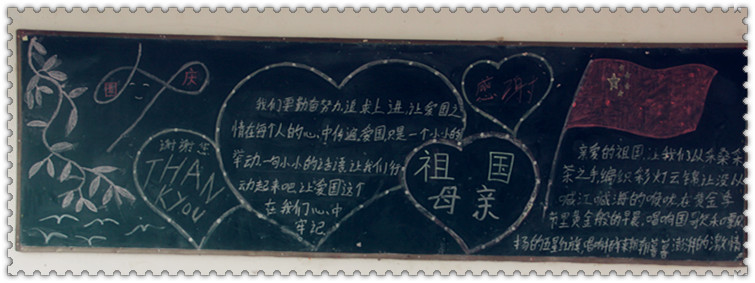 国 庆
谢谢您
THAN
KYOU
我们要勤奋努力追求上进,让爱国之
情在每个人的心中传递,爱国只是一个小小的
举动,一句小小的话语,让我们行
动起来吧,让爱国这个
在我们心中
牢记
感谢
祖国
母亲
亲爱的祖国,让我们从
之手编织彩灯云锦,让
喊江喊海的 在黄金
里黄金般的早晨,唱响国歌
扬的五星红旗 澎湃的激情